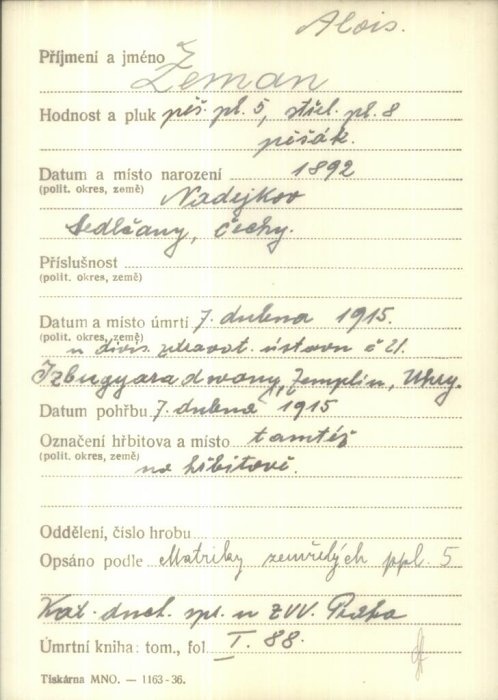 Alois.
Příjmení a jméno Zeman
Hodnost a pluk pěš. pl. 5, střel. pl. 8
pěšák.
Datum a místo narození 1892
(polit. okres, země) Nadejkov
Sedlčany, Čechy.
Příslušnost
(polit. okres, země)
Datum a místo úmrtí 7. dubna 1915.
(polit. okres, země) u divis. zdravot. ústavu č 21.
Izbugyaradvany, Zemplin, Uhry.
Datum pohřbu 7. dubna 1915
Označení hřbitova a místo tamtéž
(polit. okres, země) na hřbitově.
Oddělení, číslo hrobu
Opsáno podle Matriky zemřelých ppl. 5
Kat. duch. spr. u ZVV. Praha
Úmrtní kniha: tom., fol I. 88.
Tiskárna MNO. — 1163-36.